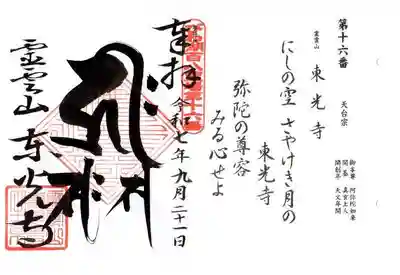 第十六番
霊雲山 東光寺
天台宗
御本尊 阿弥陀如来
開基
開創年 天文年間
にしの空 さやけき月の
東光寺
弥陀の尊容
みる心せよ
奉拝
令和七年九月二十一日
霊雲山 東光寺